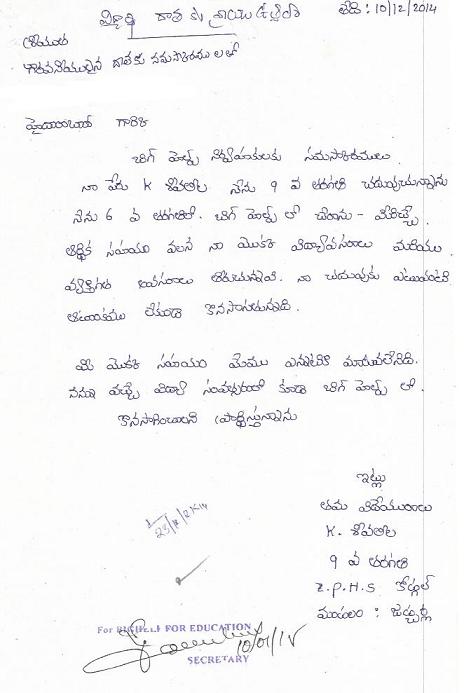 విద్యార్థి దాతకు వ్రాయు లేఖ
తేది : 10/12/2014
శ్రీయుత
గౌరవనీయులైన దాతకు నమస్కారములతో
హైదరాబాద్ గారికి
బిగ్ హెల్ప్ నిర్వాహకులకు నమస్కారములు.
నా పేరు K శివలీల నేను 9 వ తరగతి చదువుచున్నాను
నేను 6 వ తరగతిలో. బిగ్ హెల్ప్ లో చేరాను - మీరిచ్చే
ఆర్థిక సహాయం వలన నా యొక్క విద్యావసరాలు మరియు
వ్యక్తిగత అవసరాలు తీరుచున్నవి. నా చదువుకు ఎటువంటి
ఆటంకము లేకుండా కొనసాగుతున్నది.
మీ యొక్క సహాయం మేము ఎన్నటికి మరువలేనిది.
నన్ను వచ్చే విద్యా సంవత్సరంలో కూడా బిగ్ హెల్ప్ లో.
కొనసాగించాలని ప్రార్థిస్తున్నాను
ఇట్లు
తమ విధేయురాలు
K. శివలీల
9 వ తరగతి
Z.P.H.S
మండలం : జడ్చర్ల
For BIGHELP FOR EDUCATION
10/01/15
SECRETARY